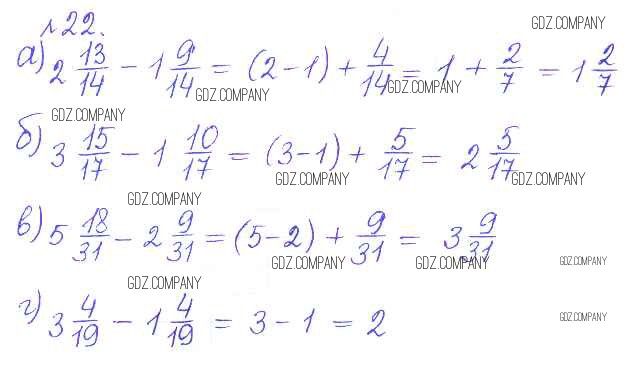 №22.
GDZ.COMPANY
а) 2 13/14 - 1 9/14 = (2-1) + 4/14 = 1 + 2/7 = 1 2/7
GDZ.COMPANY GDZ.COMPANY
GDZ.COMPANY
б) 3 15/17 - 1 10/17 = (3-1) + 5/17 = 2 5/17
GDZ.COMPANY GDZ.COMPANY
GDZ.COMPANY
в) 5 18/31 - 2 9/31 = (5-2) + 9/31 = 3 9/31
GDZ.COMPANY GDZ.COMPANY GDZ.COMPANY
GDZ.COMPANY
г) 3 4/19 - 1 4/19 = 3 - 1 = 2
GDZ.COMPANY